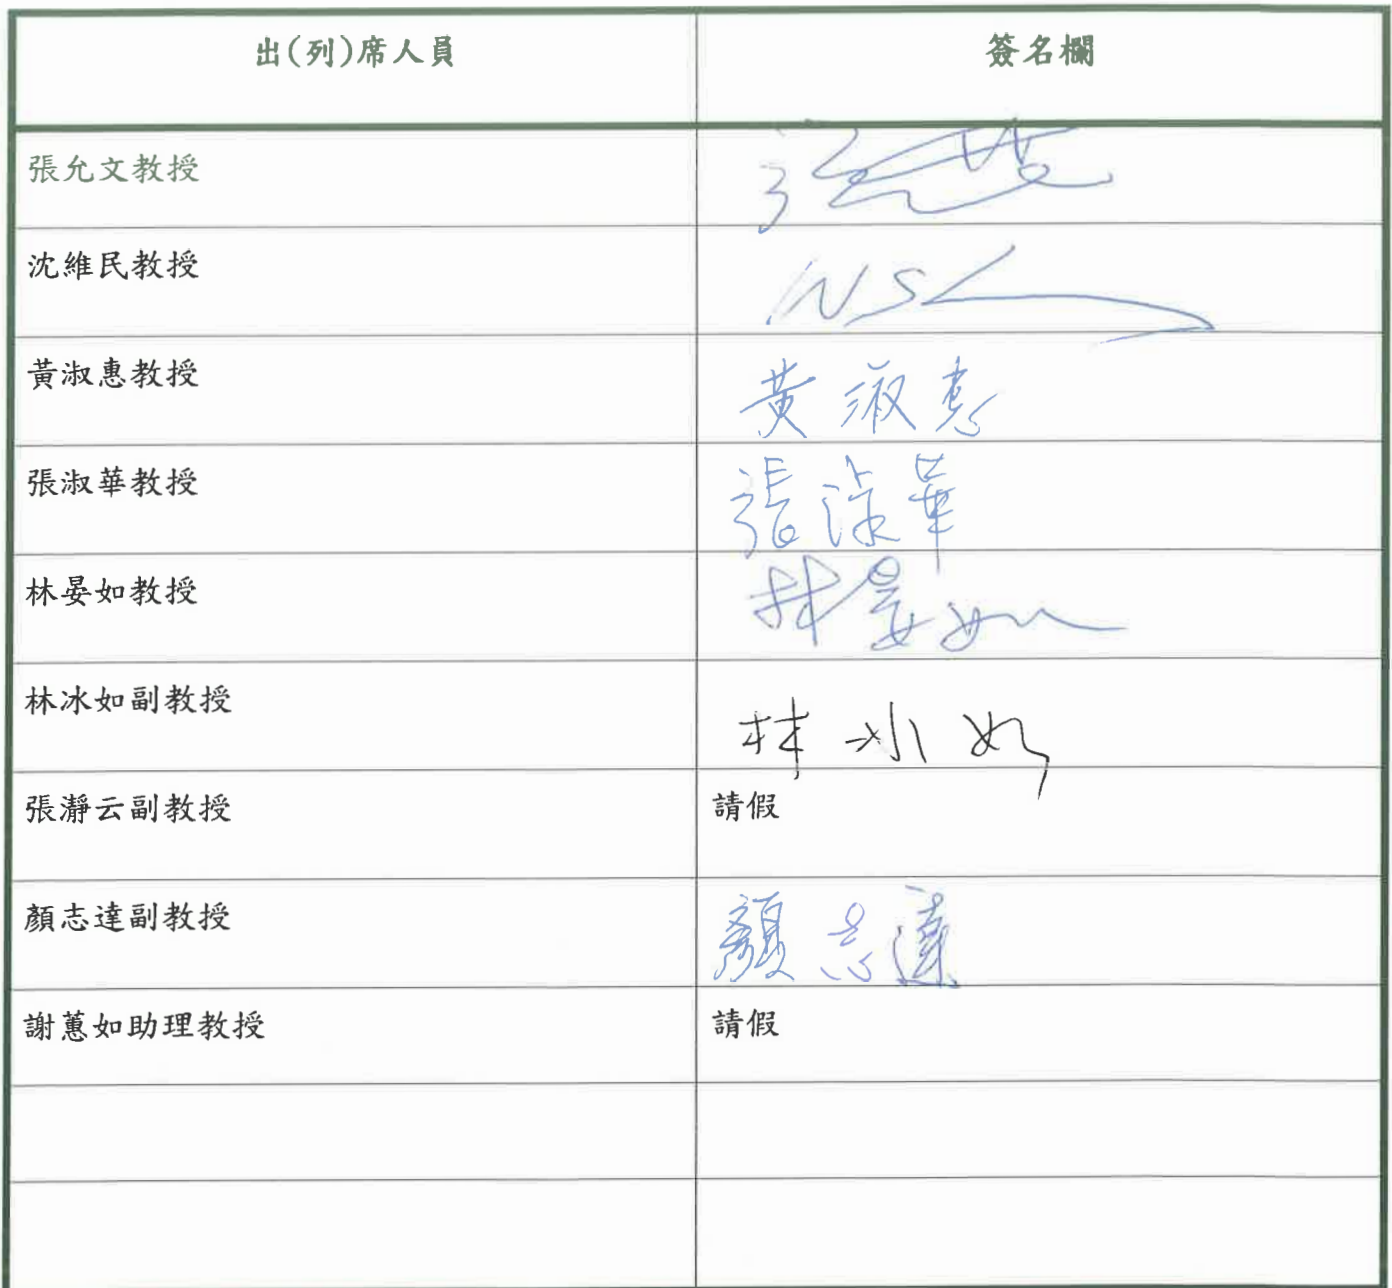 出(列)席人員 簽名欄
張允文教授
沈維民教授
黃淑惠教授 黃淑惠
張淑華教授 張淑華
林晏如教授 林晏如
林冰如副教授 林冰如
張瀞云副教授 請假
顏志達副教授 顏志達
謝蕙如助理教授 請假